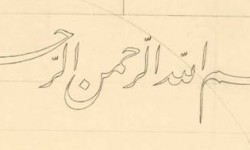 سم اللّه الرّحمن الرّح